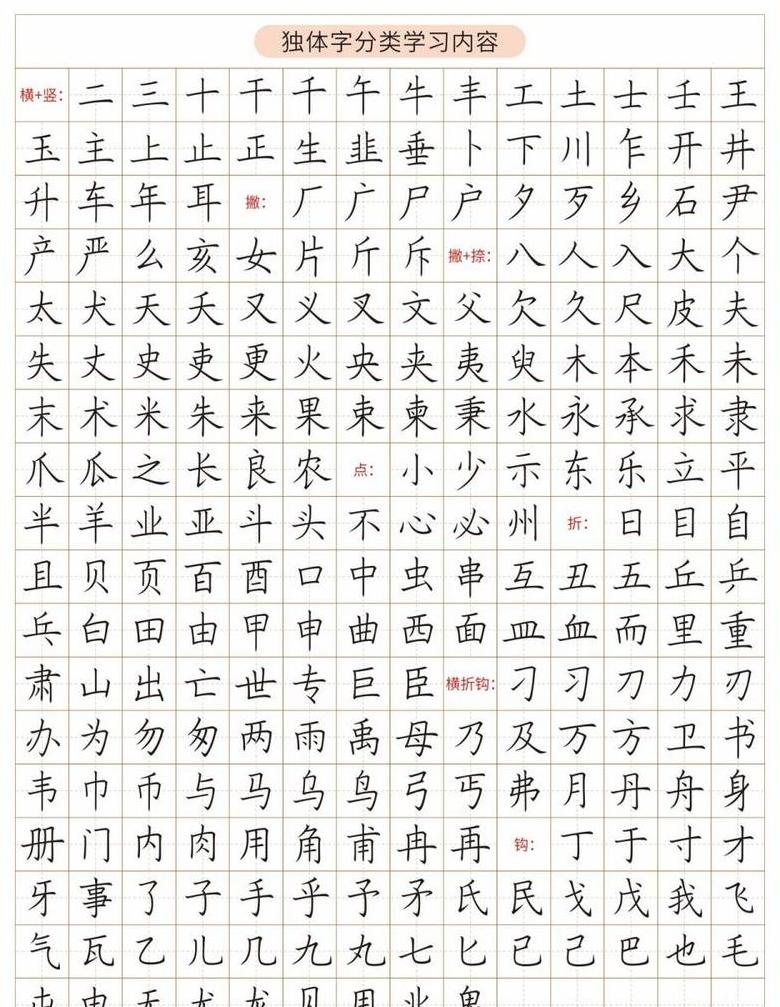 独体字分类学习内容
横+竖: 二 三 十 干 千 午 牛 丰 工 土 士 壬 王
玉 主 上 止 正 生 韭 垂 卜 下 川 乍 开 井
升 车 年 耳 撇: 厂 广 尸 户 夕 歹 乡 石 尹
产 严 么 亥 女 片 斤 斥 撇+捺: 八 人 入 大 个
太 犬 天 夭 又 义 叉 文 父 欠 久 尺 皮 夫
失 丈 史 吏 更 火 央 夹 夷 臾 木 本 禾 未
末 术 米 朱 来 果 束 柬 秉 水 永 承 求 隶
爪 瓜 之 长 良 农 点: 小 少 示 东 乐 立 平
半 羊 业 亚 斗 头 不 心 必 州 折: 日 目 自
且 贝 页 百 酉 口 中 虫 串 互 丑 五 丘 乒
乓 白 田 由 甲 申 曲 西 面 皿 血 而 里 重
肃 山 出 亡 世 专 巨 臣 横折钩: 刁 习 刀 力 刃
办 为 勿 匆 两 雨 禹 母 乃 及 万 方 卫 书
韦 巾 币 与 马 乌 鸟 弓 丐 弗 月 丹 舟 身
册 门 内 肉 用 角 甫 冉 再 钩: 丁 于 寸 才
牙 事 了 子 手 乎 予 矛 氏 民 戈 戊 我 飞
气 瓦 乙 儿 几 九 丸 七 匕 已 己 巴 也 毛